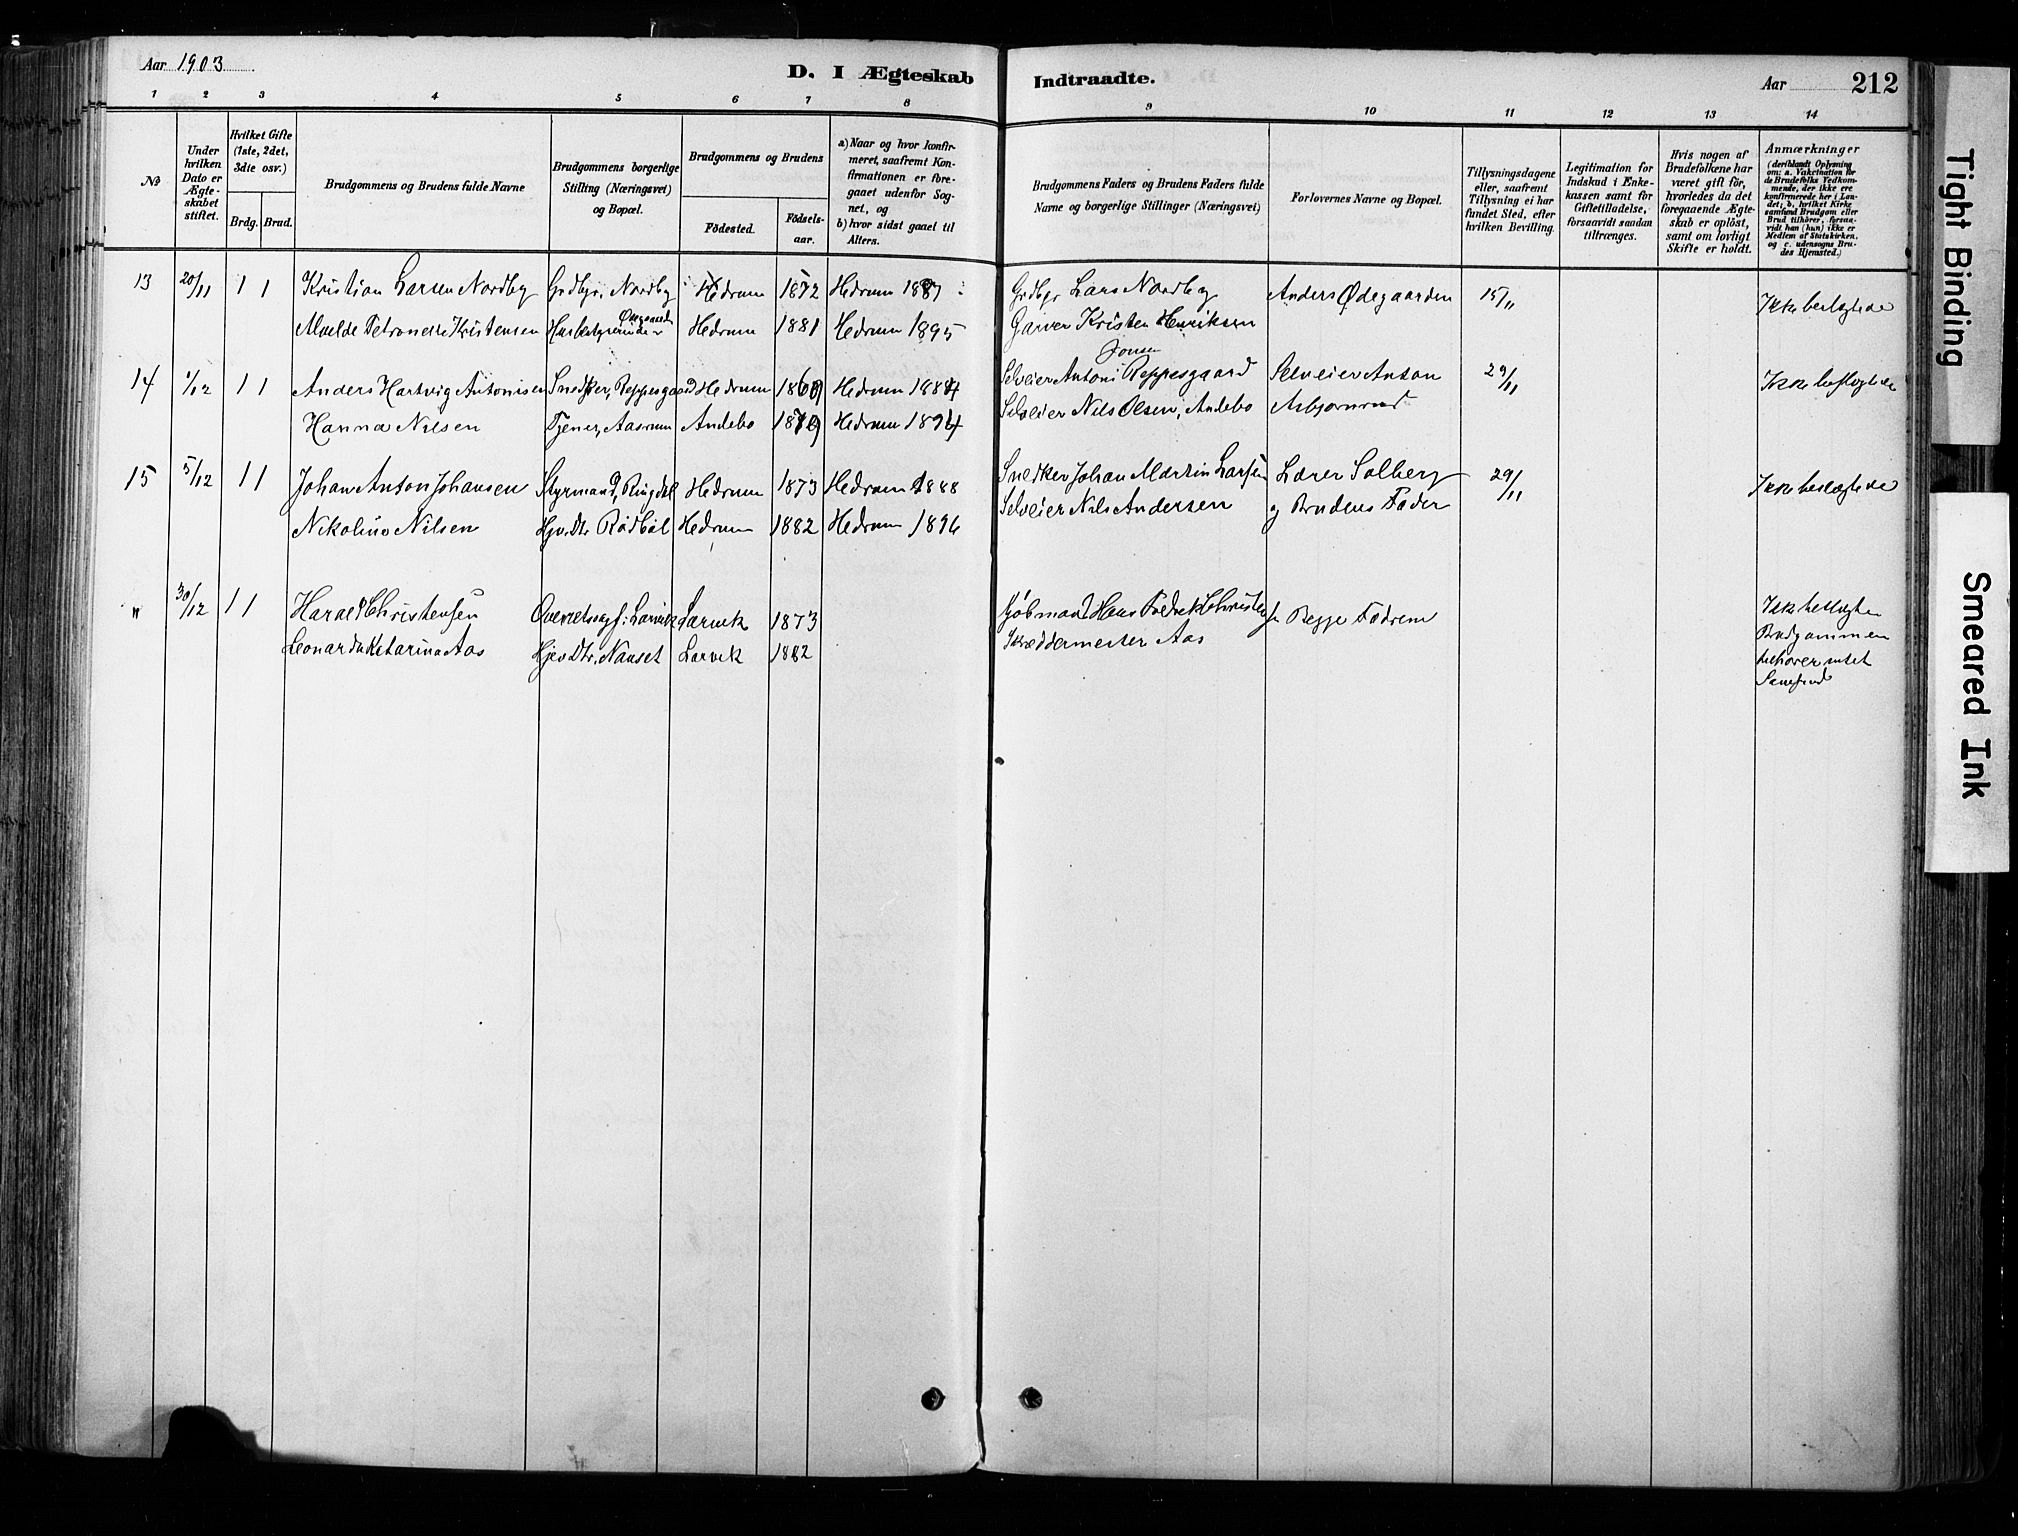 Aar 1903
D. I Ægteskab Indtraadte.
Aar 212
1 2 3 4 5 6 7 8 9 10 11 12 13 14
No
Under hvilken Dato er Ægteskabet stiftet.
Hvilket Gifte (1ste, 2det, 3die osv.)
Brdg. Brud.
Brudgommens og Brudens fulde Navne
Brudgommens borgerlige Stilling (Næringsvei) og Bopæl.
Brudgommens og Brudens
Födested. Födsels-aar.
a) Naar og hvor konfirmeret, saafremt Konfirmationen er foregaaet udenfor Sognet, og
b) hvor sidst gaael til Alters.
Brudgommens Faders og Brudens Faders fulde Navne og borgerlige Stillinger (Næringsvei)
Forlovernes Navne og Bopæl.
Tillysningsdagene eller, saafremt Tillysning ei har fundet Sted, efter hvilken Bevilling.
Legitimation for Indskud i Enkekassen samt for Giftetilladelse, forsaavidt saadan tiltrænges.
Hvis nogen af Brudefolkene har været gift för, hvorledes da det foregaaende Ægteskab er oplöst, samt om lovligt Skifte er holdt.
Anmærkninger
(deriblandt Oplysning om: a. Vakcination for de Brudefolks Vedkommende, der ikke ere konfirmerede her i Landet; b, hvilket Kirkesamfund Brudgom eller Brud tilhörer, forsaavidt han (hun) ikke er Medlem af Statskirken. og c. udensogns Brudes Hjemsted.)
13 20/11 1 1 Kristian Larsen Nordby Grdbgr. Nordby Hedrum 1872 Hedrum 1887 Grdbgr Lars Nordby Anders Ødegaarden 15/11 Ikke beslægtede
Petronelle Kristensen Hedrum 1881 Hedrum 1895 Garver Kristen Henriksen
Jonsen
14 1/12 1 1 Anders Hartvig Antonisen Snedker, Reppesgaard Hedrum 1869 Hedrum 1884 Selveier Antoni Reppesgaard Selveier Anton 29/11 Ikke beslægtede
Hanna Nilsen Tjener, Aasrum Andebo 1879 Hedrum 1894 Selveier Nils Olsen, Andebo Asbjørnrød
15 5/12 1 1 Johan Anton Johansen Styrmand, Ringdal Hedrum 1873 Hedrum 1888 Snedker Johan Martin Larsen Lærer Solberg 29/11 Ikke beslægtede
Nikoline Nilsen Hjv. Dtr Rødbøl Hedrum 1882 Hedrum 1896 Selveier Nils Andersen og Brudens Fader
" 30/12 1 1 Harald Christensen Overretssagf: Larvik Larvik 1873 Kjøbmand Hans Fredrik Christensen Begge Fædrene Ikke beslægtede
Leonarda Katarina Aas Hjev Dtr, Nanset Larvik 1882 Skræddermester Aas Brudgommen
tilhører intet
Samfund
Tight Binding
Smeared Ink